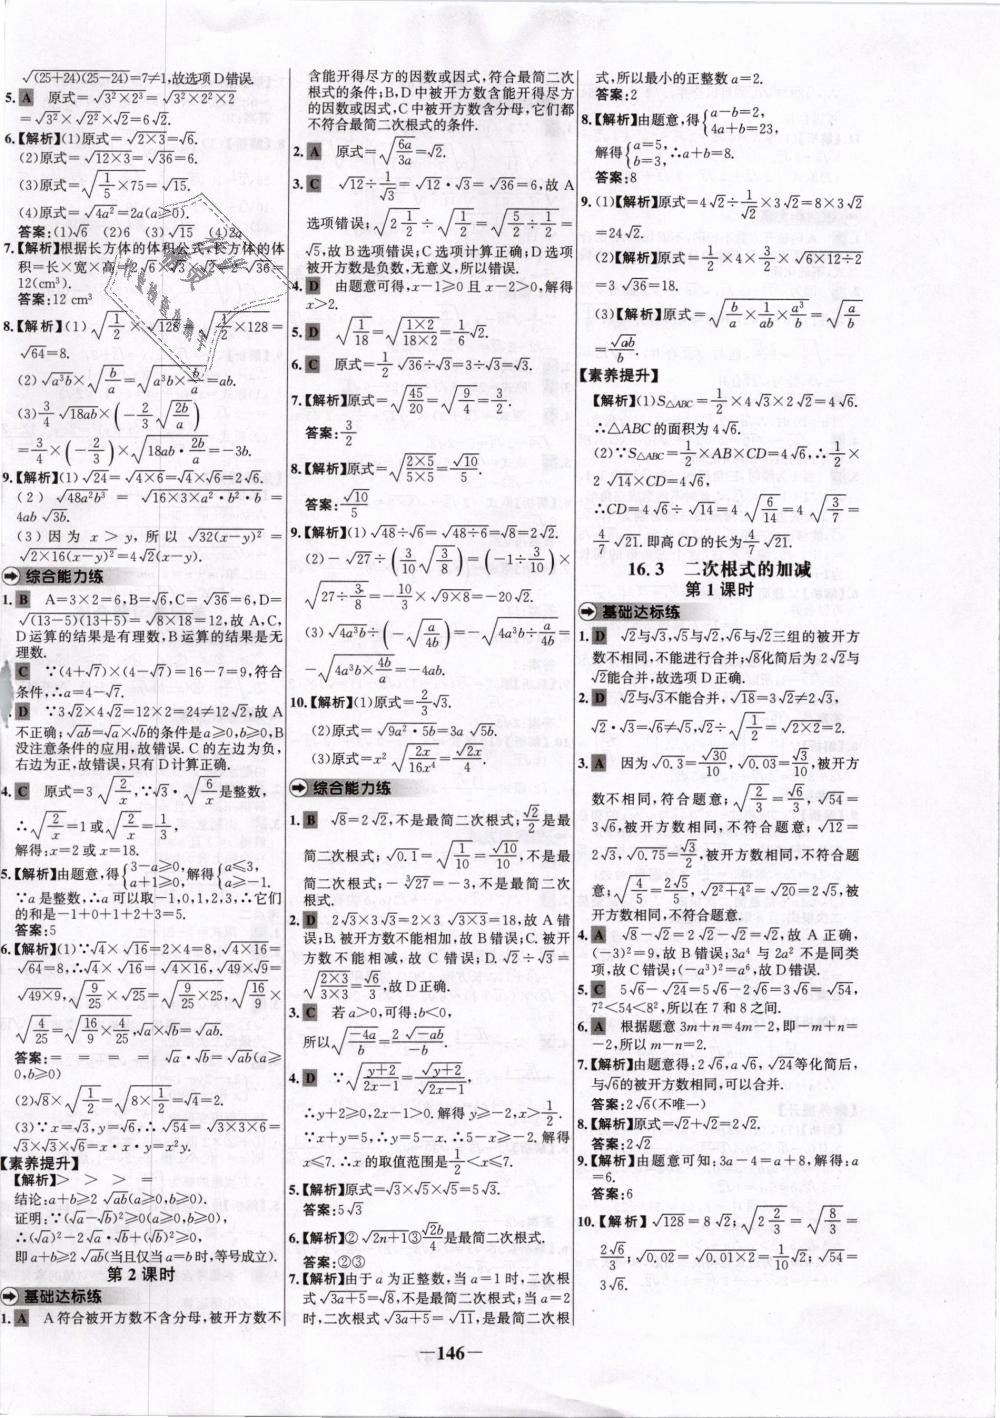 √(25+24)(25−24)=7≠1,故选项D错误.
5. A 原式=√3²×2³=√3²×2²×2
=√3²×√2²×√2=6√2.
6.【解析】(1)原式=√2×3=√6.
(2)原式=√12×3=√36=6.
(3)原式=√(1/5×75)=√15.
(4)原式=√4a²=2a(a≥0).
答案:(1)√6 (2)6 (3)√15 (4)2a
7.【解析】根据长方体的体积公式,长方体的体
积=长×宽×高=2√6×√3×√2=2√36=
12(cm³).
答案:12 cm³
8.【解析】(1)√(1/2)×√128=√(1/2×128)=
√64=8.
(2)√a³b×√(b/a)=√(a³b×b/a)=ab.
(3)3/4√18ab×(−2/3√(2b/a))
=3/4×(−2/3)×√(18ab·2b/a)=−3b.
9.【解析】(1)√24=√4×6=√4×√6=2√6.
(2)√48a²b³=√16×3×a²·b²·b=
4ab√3b.
(3)因为x>y,所以√32(x−y)²=
√2×16(x−y)²=4√2(x−y).
综合能力练
1. B A=3×2=6,B=√6,C=√36=6,D=
√(13−5)(13+5)=√8×18=12,故A,C,
D运算的结果是有理数,B运算的结果是无
理数.
C ∵(4+√7)×(4−√7)=16−7=9,符合
条件,∴a=4−√7.
D ∵3√2×4√2=12×2=24≠12√2,故A
不正确;√ab=√a×√b的条件是a≥0,b≥0,B
没注意条件的应用,故错误. C的左边为负,
右边为正,故错误,只有D计算正确.
4. C 原式=3√(2/x),∵√3·√(6/x)是整数,
∴√(2/x)=1或√(2/x)=1/3,
解得:x=2或x=18.
5.【解析】由题意,得{3−a≥0, a+1≥0,解得{a≤3, a≥−1.
∵a是整数,∴a可以取−1,0,1,2,3,∴它们
的和是−1+0+1+2+3=5.
答案:5
6.【解析】(1)∵√4×√16=2×4=8,√4×16=
√64=8,∴√4×√16=√4×16,√49×√9=
√49×9,√(9/25)×√25=√(9/25×25),√(16/9)×
√(4/25)=√(16/9×4/25),√a×√b=√ab.
答案:= = = = √a·√b=√ab(a≥
0,b≥0)
(2)√8×√(1/2)=√(8×1/2)=√4=2.
(3)∵x=√3,y=√6,∴√54=√3×3×6=
√3×√3×√6=x·x·y=x²y.
【素养提升】
【解析】> > > =
结论:a+b≥2√ab(a≥0,b≥0).
证明:∵(√a−√b)²≥0(a≥0,b≥0),
∴(√a)²−2√a·√b+(√b)²≥0,
即a+b≥2√ab(当且仅当a=b时,等号成立).
第2课时
基础达标练
1. A A符合被开方数不含分母,被开方数不
含能开得尽方的因数或因式,符合最简二次
根式的条件;B,D中被开方数含能开得尽方
的因数或因式,C中被开方数含分母,它们都
不符合最简二次根式的条件.
2. A 原式=√(6a/3a)=√2.
3. C √12÷1/√3=√12·√3=√36=6,故A
选项错误;√(2 1/2)÷√(1/2)=√(5/2÷1/2)=
√5,故B选项错误;C选项计算正确;D选项
被开方数是负数,无意义,所以错误.
4. D 由题意可得,x−1≥0且x−2>0,解得
x>2.
5. D √(1/18)=√(1×2/18×2)=1/6√2.
6. C 原式=1/2√36÷√3=3÷√3=√3.
7.【解析】原式=√(45/20)=√(9/4)=3/2.
答案:3/2
8.【解析】原式=√(2×5/5×5)=√10/5.
答案:√10/5
9.【解析】(1)√48÷√6=√48÷6=√8=2√2.
(2)−√27÷(3/10√(3/8))=(−1÷3/10)×
√(27÷3/8)=−10/3×√9×8=−20√2.
(3)√4a³b÷(−√(a/4b))=−√(4a³b÷a/4b)=
−√(4a³b×4b/a)=−4ab.
10.【解析】(1)原式=2/3√3.
(2)原式=√9a²·5b=3a√5b.
(3)原式=x²√(2x/16x⁴)=√2x/4.
综合能力练
1. B √8=2√2,不是最简二次根式;√2/2是最
简二次根式;√0.1=√(1/10)=√10/10,不是最
简二次根式;−³√27=−3,不是最简二次
根式.
2. D 2√3×3√3=2×3√3×3=18,故A错
误;B.被开方数不能相加,故B错误;C.被开
方数不能相减,故C错误;D.√2÷√3=
√(2×3/3×3)=√6/3,故D正确.
3. C 若a>0,可得:b<0,
所以√(−4a/b)=2√−ab/−b.
4. D ∵√(y+2/2x−1)=√y+2/√2x−1,
∴y+2≥0,2x−1>0.解得y≥−2,x>1/2.
∵x+y=5,∴y=5−x.∴5−x≥−2.解得
x≤7.∴x的取值范围是1/2<x≤7.
5.【解析】原式=√3×√5×√5=5√3.
答案:5√3
6.【解析】②√2n+1③√2b/4是最简二次根式.
答案:②③
7.【解析】由于a为正整数,当a=1时,二次根
式√3a+5=√8,不是最简二次根式;当a=2
时,二次根式√3a+5=√11,是最简二次根
式,所以最小的正整数a=2.
答案:2
8.【解析】由题意,得{a−b=2, 4a+b=23,
解得{a=5, b=3,∴a+b=8.
答案:8
9.(1)【解析】原式=4√2÷1/√2×3√2=8×3√2
=24√2.
(2)【解析】原式=1/2×4×3/2×√6×12÷2
=3√36=18.
(3)【解析】原式=√(b/a×1/ab×a³/b)=√(a/b)
=√ab/b.
【素养提升】
【解析】(1)S△ABC=1/2×4√3×2√2=4√6.
∴△ABC的面积为4√6.
(2)∵S△ABC=1/2×AB×CD=4√6,∴1/2×
2√14×CD=4√6,
∴CD=4√6÷√14=4√(6/14)=4√(3/7)=
4/7√21.即高CD的长为4/7√21.
16.3 二次根式的加减
第1课时
基础达标练
1. D √2与√3,√5与√2,√6与√2三组的被开方
数不相同,不能进行合并;√8化简后为2√2与
√2能合并,故选项D正确.
2. D √2与√3不能合并,√18=3√2≠2√3,
√2·√3=√6≠√5,√2÷√(1/2)=√2×2=2.
3. A 因为√0.3=√30/10,√0.03=√3/10,被开方
数不相同,符合题意;√(2/3)=√6/3,√54=
3√6,被开方数相同,不符合题意;√12=
2√3,√0.75=√3/2,被开方数相同,不符合题
意;√(4/5)=2√5/5,√2²+4²=√20=2√5,被
开方数相同,不符合题意.
4. A √8−√2=2√2−√2=√2,故A正确,
(−3)²=9,故B错误;3a⁴与2a²不是同类
项,故C错误;(−a³)²=a⁶,故D错误.
5. C 5√6−√24=5√6−2√6=3√6=√54,
7²<54<8²,所以在7和8之间.
6. A 根据题意3m+n=4m−2,即−m+n=
−2,所以m−n=2.
7.【解析】由题意得:2√6,a√6,√24等化简后,
与√6的被开方数相同,可以合并.
答案:2√6(不唯一)
8.【解析】原式=√2+√2=2√2.
答案:2√2
9.【解析】由题意可知:3a−4=a+8,解得:a
=6.
答案:6
10.【解析】√128=8√2;√(2 2/3)=√(8/3)=
2√6/3;√0.02=√0.01×2=1/10√2;√54=
3√6.
—146—